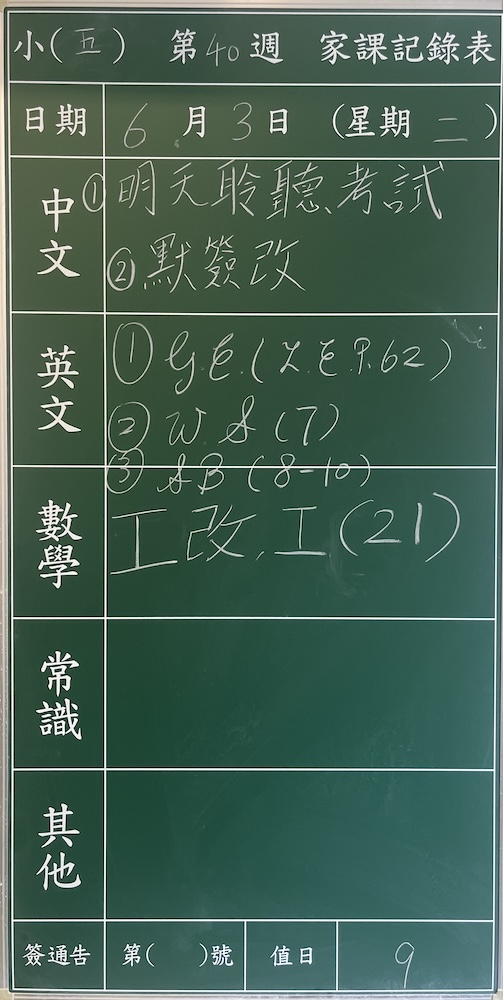 小(五) 第40週 家課記錄表
日期 6月3日 (星期二)
中文 ①明天聆聽考試
②默簽改
英文 ①G.E.(L.E P.62)
②W.S(7)
③SB(8-10)
數學 工改,工(21)
常識
其他
簽通告 第( )號 值日 9